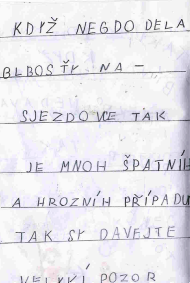 KDYŽ NEGDO DELA
BLBOSŤY NA -
SJEZDOVCE TAK
JE MNOH ŠPATNÍH
A HROZNÍH PŘÍPADU
TAK SY DÁVEJTE
VELKVÍ POZOR